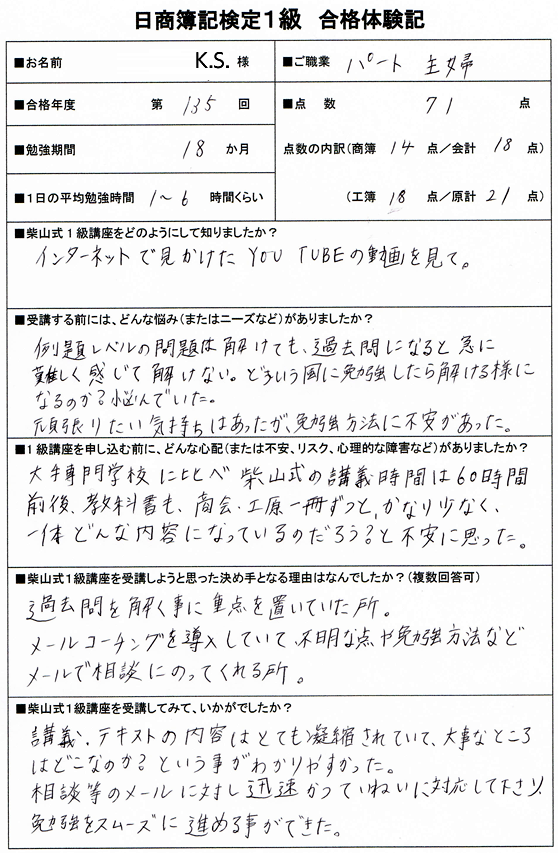 日商簿記検定1級 合格体験記
■お名前 K.S. 様 ■ご職業 パート 主婦
■合格年度 第 135 回 ■点 数 71 点
■勉強期間 18 か月 点数の内訳(商簿 14 点/会計 18 点)
■1日の平均勉強時間 1〜6 時間くらい (工簿 18 点/原計 21 点)
■柴山式1級講座をどのようにして知りましたか?
インターネットで見かけた YOU TUBEの動画を見て。
■受講する前には、どんな悩み(またはニーズなど)がありましたか?
例題レベルの問題は解けても、過去問になると急に
難しく感じて解けない。どういう風に勉強したら解ける様に
なるのか?悩んでいた。
頑張りたい気持ちはあったが、勉強方法に不安があった。
■1級講座を申し込む前に、どんな心配(または不安、リスク、心理的な障害など)がありましたか?
大手専門学校に比べ柴山式の講義時間は60時間
前後、教科書も、商会・工原一冊ずつと、かなり少なく、
一体どんな内容になっているのだろう?と不安に思った。
■柴山式1級講座を受講しようと思った決め手となる理由はなんでしたか?(複数回答可)
過去問を解く事に重点を置いていた所。
メールコーチングを導入していて、不明な点や勉強方法など
メールで相談にのってくれる所。
■柴山式1級講座を受講してみて、いかがでしたか?
講義、テキストの内容はとても凝縮されていて、大事なところ
はどこなのか?という事がわかりやすかった。
相談等のメールに対し迅速かつていねいに対応して下さり、
勉強をスムーズに進める事ができた。